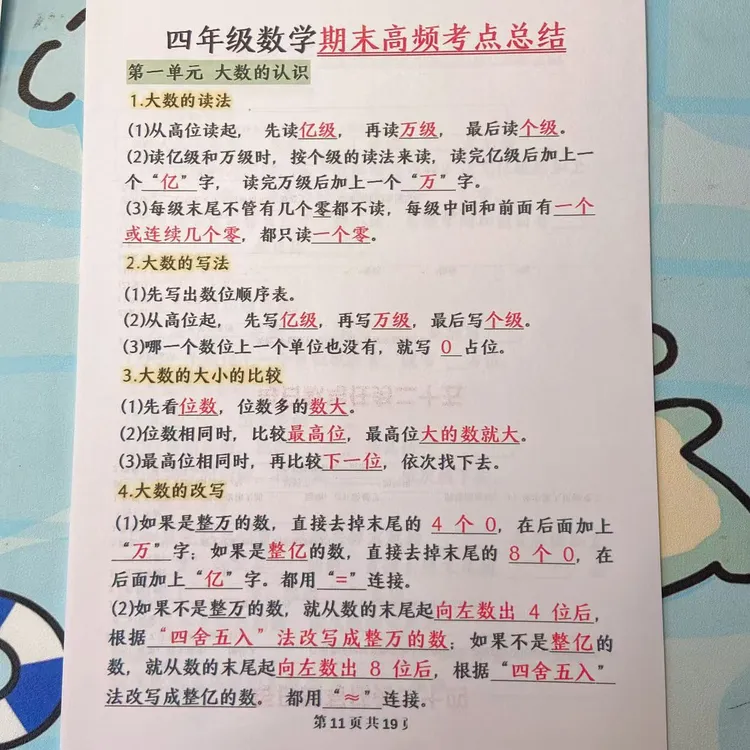 四年级数学期末高频考点总结
第一单元 大数的认识
1.大数的读法
(1)从高位读起， 先读亿级， 再读万级， 最后读个级。
(2)读亿级和万级时，按个级的读法来读，读完亿级后加上一
个“亿”字， 读完万级后加上一个“万”字。
(3)每级末尾不管有几个零都不读，每级中间和前面有一个
或连续几个零，都只读一个零。
2.大数的写法
(1)先写出数位顺序表。
(2)从高位起， 先写亿级，再写万级，最后写个级。
(3)哪一个数位上一个单位也没有，就写 0 占位。
3.大数的大小的比较
(1)先看位数，位数多的数大。
(2)位数相同时，比较最高位，最高位大的数就大。
(3)最高位相同时，再比较下一位，依次找下去。
4.大数的改写
(1)如果是整万的数，直接去掉末尾的 4 个 0，在后面加上
“万”字；如果是整亿的数，直接去掉末尾的 8 个 0，在
后面加上“亿”字。都用“=”连接。
(2)如果不是整万的数，就从数的末尾起向左数出 4 位后，
根据“四舍五入”法改写成整万的数；如果不是整亿的
数，就从数的末尾起向左数出 8 位后，根据“四舍五入”
法改写成整亿的数。 都用“≈”连接。
第 11 页 共 19